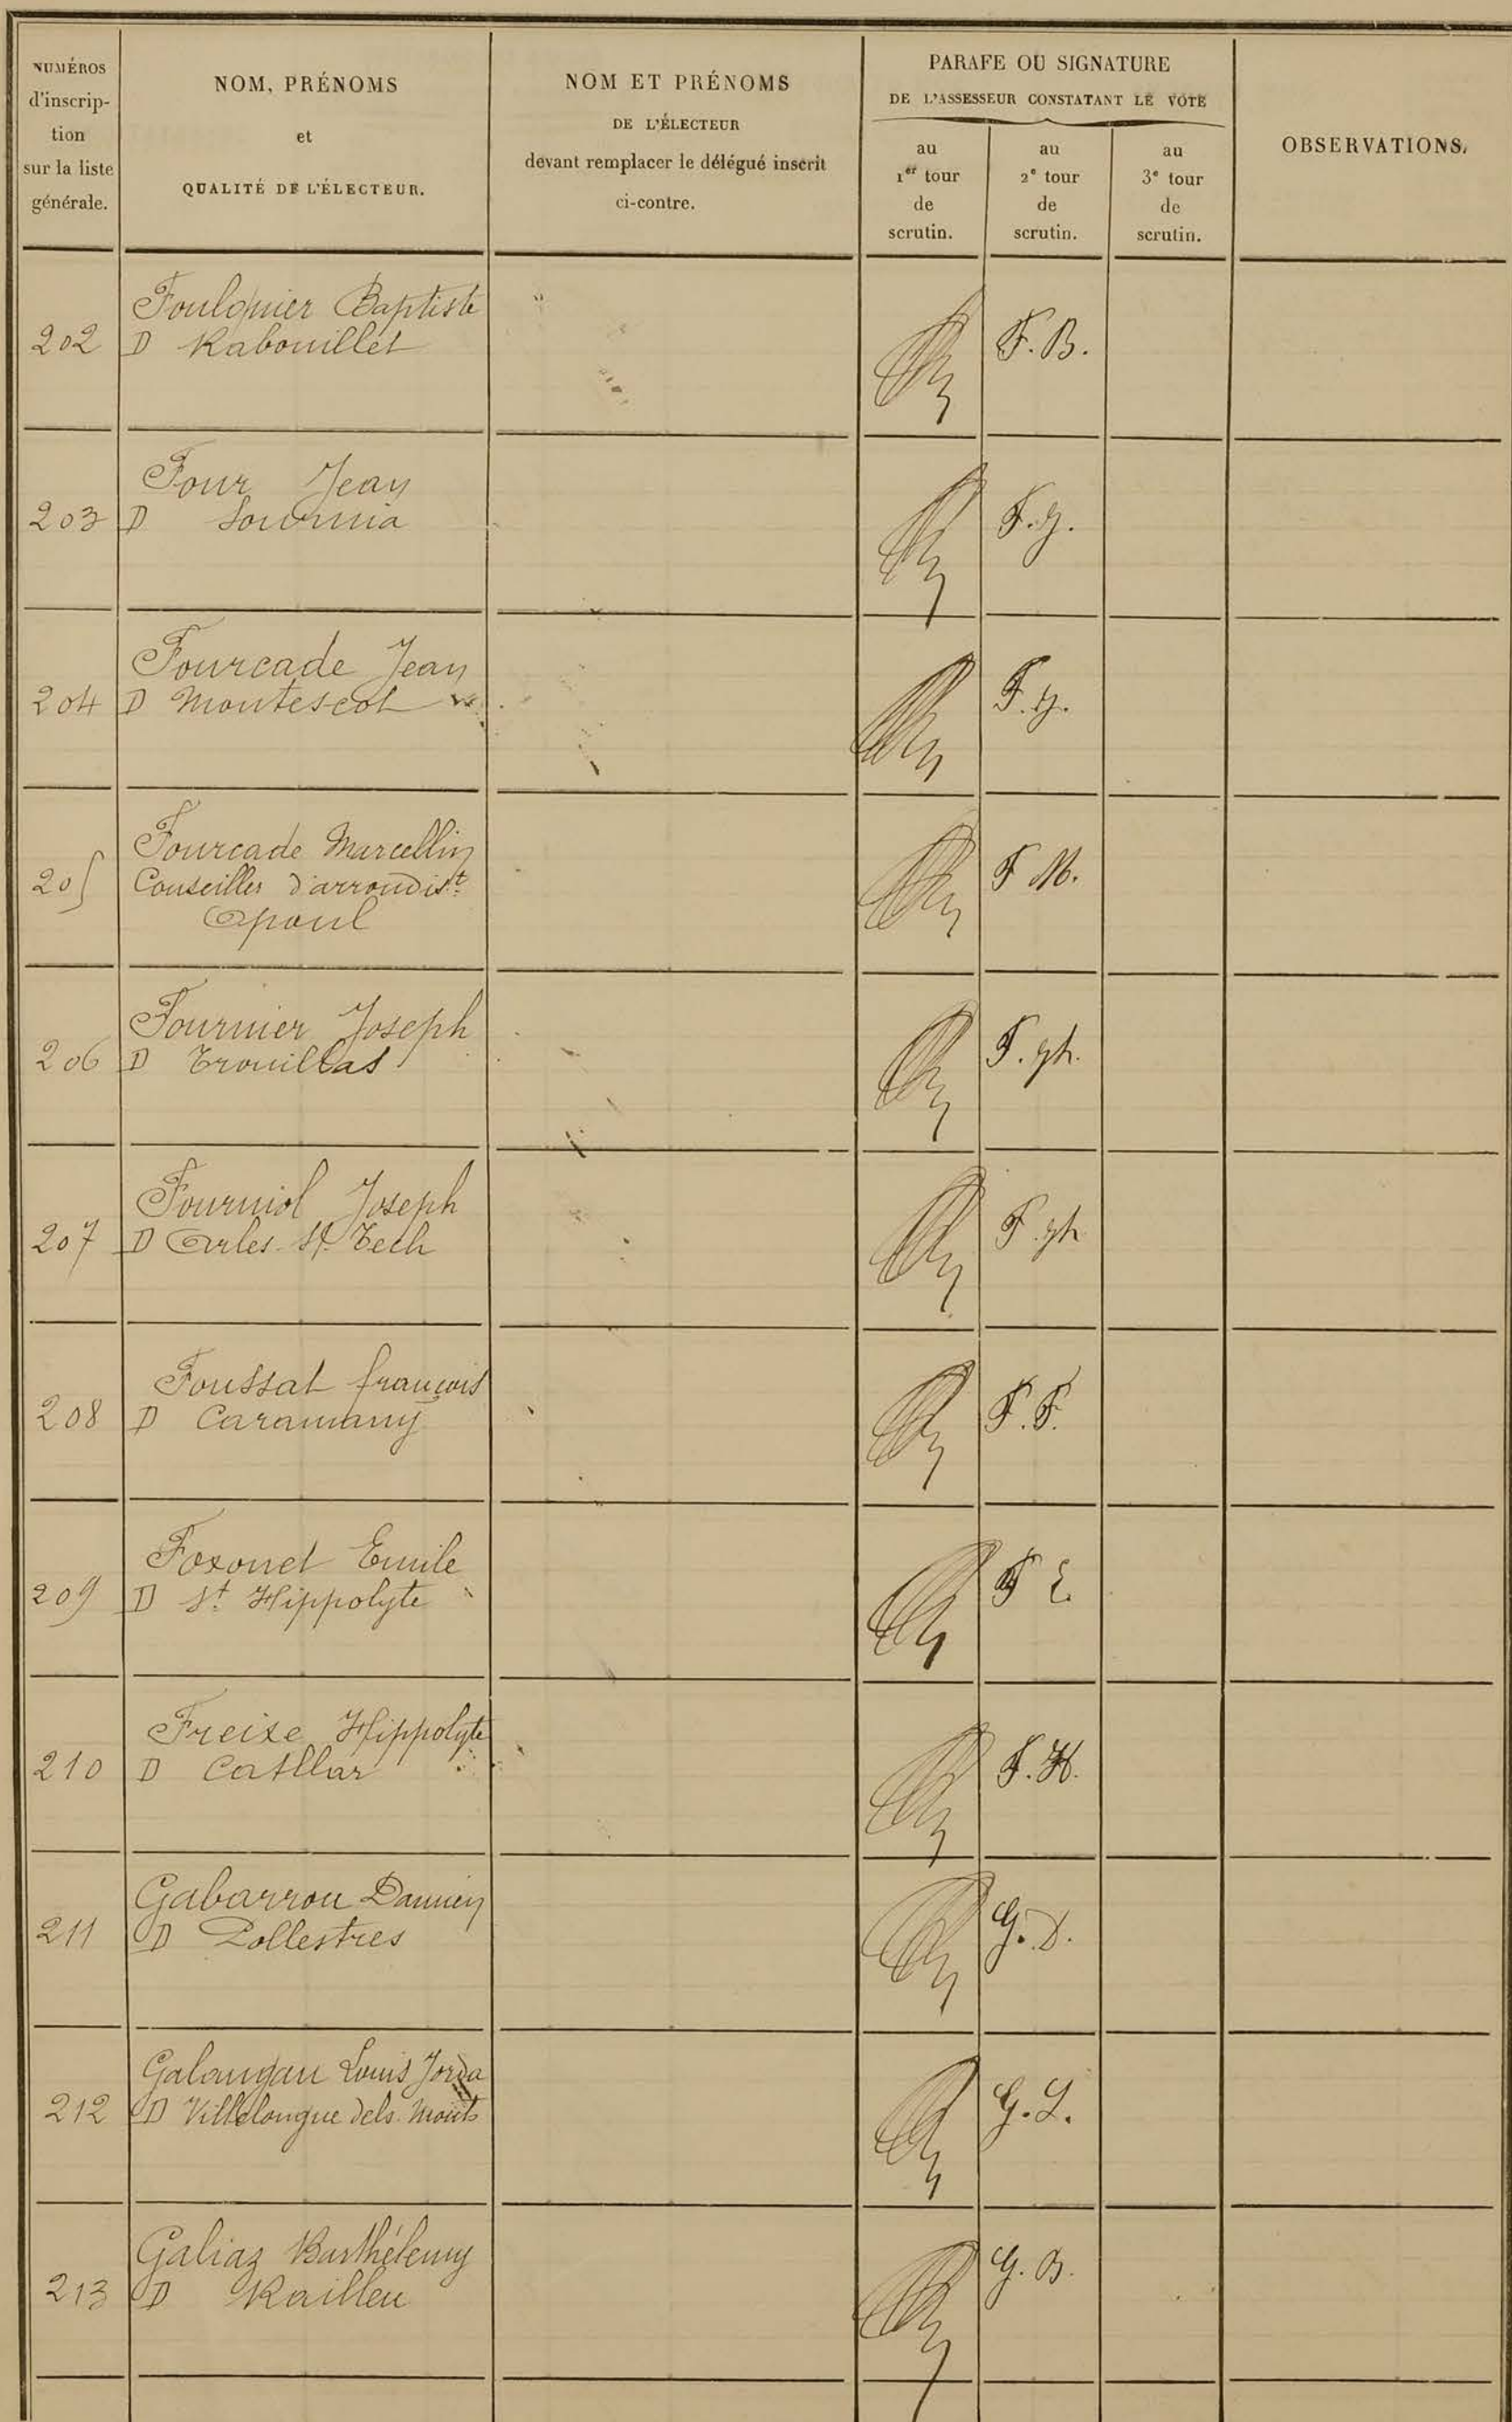 NUMÉROS
d'inscrip-
tion
sur la liste
générale.
NOM, PRÉNOMS
et
QUALITÉ DE L'ÉLECTEUR.
NOM ET PRÉNOMS
DE L'ÉLECTEUR
devant remplacer le délégué inscrit
ci-contre.
PARAFE OU SIGNATURE
DE L'ASSESSEUR CONSTATANT LE VOTE
au
1er tour
de
scrutin.
au
2e tour
de
scrutin.
au
3e tour
de
scrutin.
OBSERVATIONS.
Foulquier Baptiste
202 D Rabouillet F. B.
Four Jean
203 D Sournia F. J.
Fourcade Jean
204 D Montescot F. J.
Fourcade Marcellin
205 Conseiller d'arrondist F M.
Opoul
Fournier Joseph
206 D Trouillas F. Jh.
Fourniol Joseph
207 D Arles-s/-Tech F. Jh
Foussat françois
208 D Caramany F. F.
Foxonet Emile
209 D St Hippolyte F E.
Freixe Hippolyte
210 D Catllar F. H.
Gabarrou Damien
211 D Pollestres G. D.
Galangau Louis Jorda
212 D Villelongue dels Monts G. L.
Galiaz Barthélemy
213 D Railleu G. B.